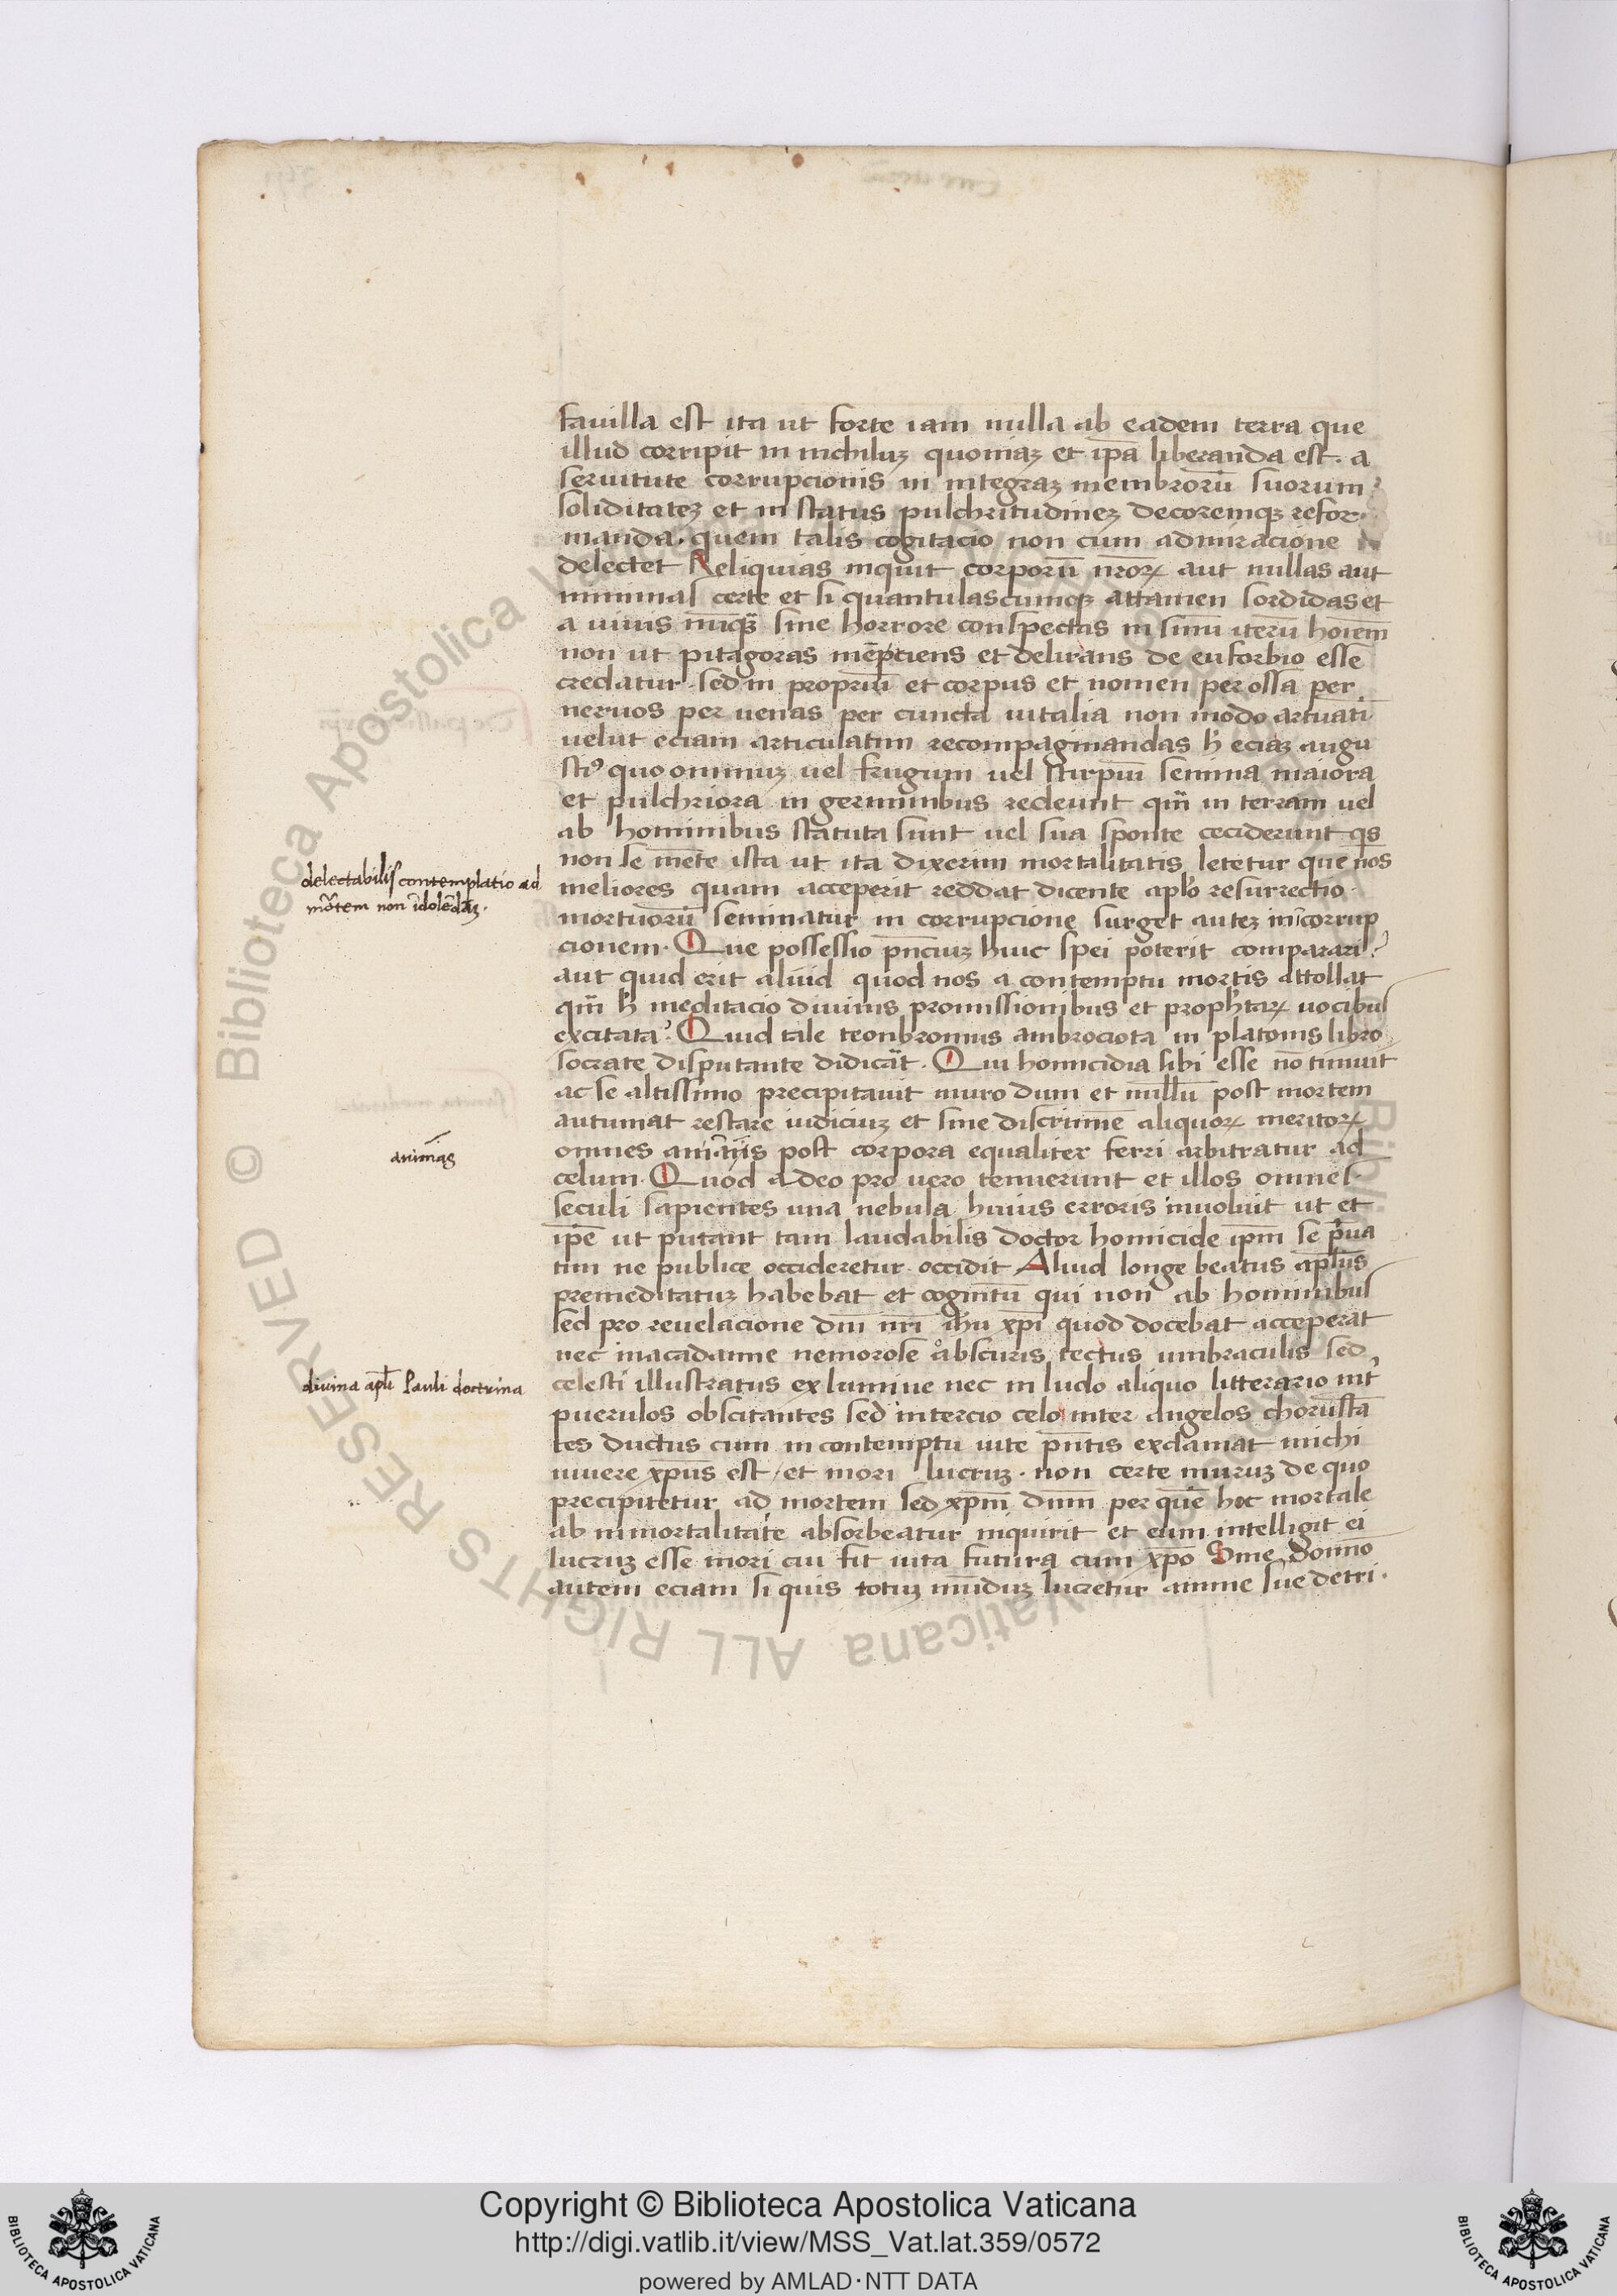 fauilla est ita ut forte iam nulla ab eadem terra que
illud corripit in nichiluꝫ quoniaꝫ et ip̄a liberanda est. a
seruitute corrupcionis in integraꝫ membroruꝫ suorum
soliditateꝫ et in status pulchritudineꝫ decoremqꝫ refor
manda. quem talis cogitacio non cum admiracione
delectet Reliquias inquit corporū nr̄oꝝ aut nullas aut
minimas certe et si quantulascumqꝫ attamen sordidas et
a uiuis nūqꝫ sine horrore conspectas in sinū iterū hoīem
non ut pitagoras mēpciens et delirans de euforbio esse
credatur. sed in propriū et corpus et nomen per ossa per
neruos per uenas per cuncta uitalia non modo artuatī
uelut eciam articulatim recompaginandas h̓ eciaꝫ augu
stiꝰ quo omniuꝫ uel frugum uel stirpiū semina maiora
et pulchriora in germinibus redeunt qm̄ in terram uel
ab hominibus statuta sunt uel sua sponte ceciderunt qs
non se mēte ista ut ita dixerim mortalitatis letetur que nos
delectabilis contemplatio ad
mōtem non īdolēdaꝫ.
meliores quam acceperit reddat dicente apl̓o resurrectio
mortuorū seminatur in corrupcione surget auteꝫ incorrup
cionem. Que possessio pn̄ciuꝫ huic spei poterit comparari?
aut quid erit aliud quod nos a contemptu mortis attollat
qm̄ h̓ meditacio diuinis promissionibus et proph̓taꝝ uocibus
excitata? Quid tale teonbromus ambrociota in platonis libro
socrate disputante didicat̄. Qui homicidia sibi esse nō timuit
ac se altissimo precipitauit muro dum et nullū post mortem
autumat restare iudiciuꝫ et sine discrimine aliquoꝝ meritoꝝ
omnes post corpora equaliter ferri arbitratur ad
animas
celum. Quod adeo pro uero tenuerunt et illos omnes
seculi sapientes una nebula huius erroris inuoluit ut et
ip̄e ut putant tam laudabilis doctor homicide ip̄m se pͥua
tim ne publice occideretur occidit Aliud longe beatus apl̄us
premeditatuꝫ habebat et cognitū qui non ab hominibus
sed pro reuelacione dn̄i nr̄i ih̄u xp̄i quod docebat acceperat
nec inacadamie nemorose obscuris tectus umbraculis sed
celesti illustratus ex lumine nec in ludo aliquo litterario int̓
diuina apl̓i Pauli doctrina
puerulos obscitantes sed intercio celo inter angelos chorusta
tes ductus cum in contemptu uite pn̄tis exclamat michi
uiuere xp̄us est et mori lucruꝫ. non certe muruꝫ de quo
precipitetur ad mortem sed xp̄m dn̄m per quē hoc mortale
ab immortalitate absorbeatur inquirit et eum intelligit ei
lucruꝫ esse mori cui fit uita futura cum xp̄o Sine domīo
autem eciam si quis totuꝫ mūduꝫ lucretur anime sue detri.
Copyright © Biblioteca Apostolica Vaticana
http://digi.vatlib.it/view/MSS_Vat.lat.359/0572
powered by AMLAD·NTT DATA
© Biblioteca Apostolica Vaticana
ALL RIGHTS RESERVED
BIBLIOTECA APOSTOLICA VATICANA
BIBLIOTECA APOSTOLICA VATICANA